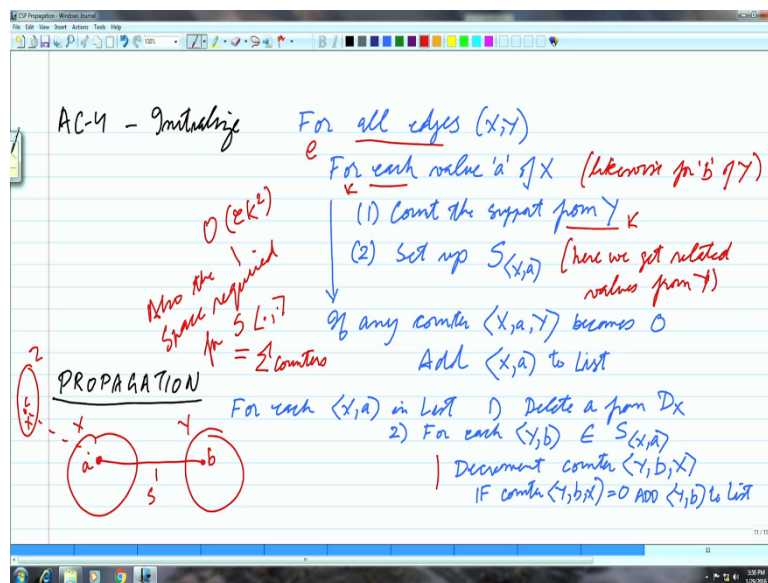 CSP Propagation - Windows Journal
File Edit View Insert Actions Tools Help
AC-4 - Initialize
For all edges (X,Y)
e
For each value 'a' of X (likewise for 'b' of Y)
K
(1) Count the support from Y K
(2) Set up S<X,a> (here we get related
values from Y)
If any counter <X,a,Y> becomes 0
Add <X,a> to List
O(eK²)
Also the
space required
for S[.,.]
= Σ counters
PROPAGATION
For each <X,a> in List 1) Delete a from Dx
2) For each <Y,b> ∈ S<X,a>
Decrement counter <Y,b,X>
IF counter <Y,b,X>=0 ADD <Y,b> to List
2
X Y
a b
S
11 / 11
11
3:50 PM
1/29/2016